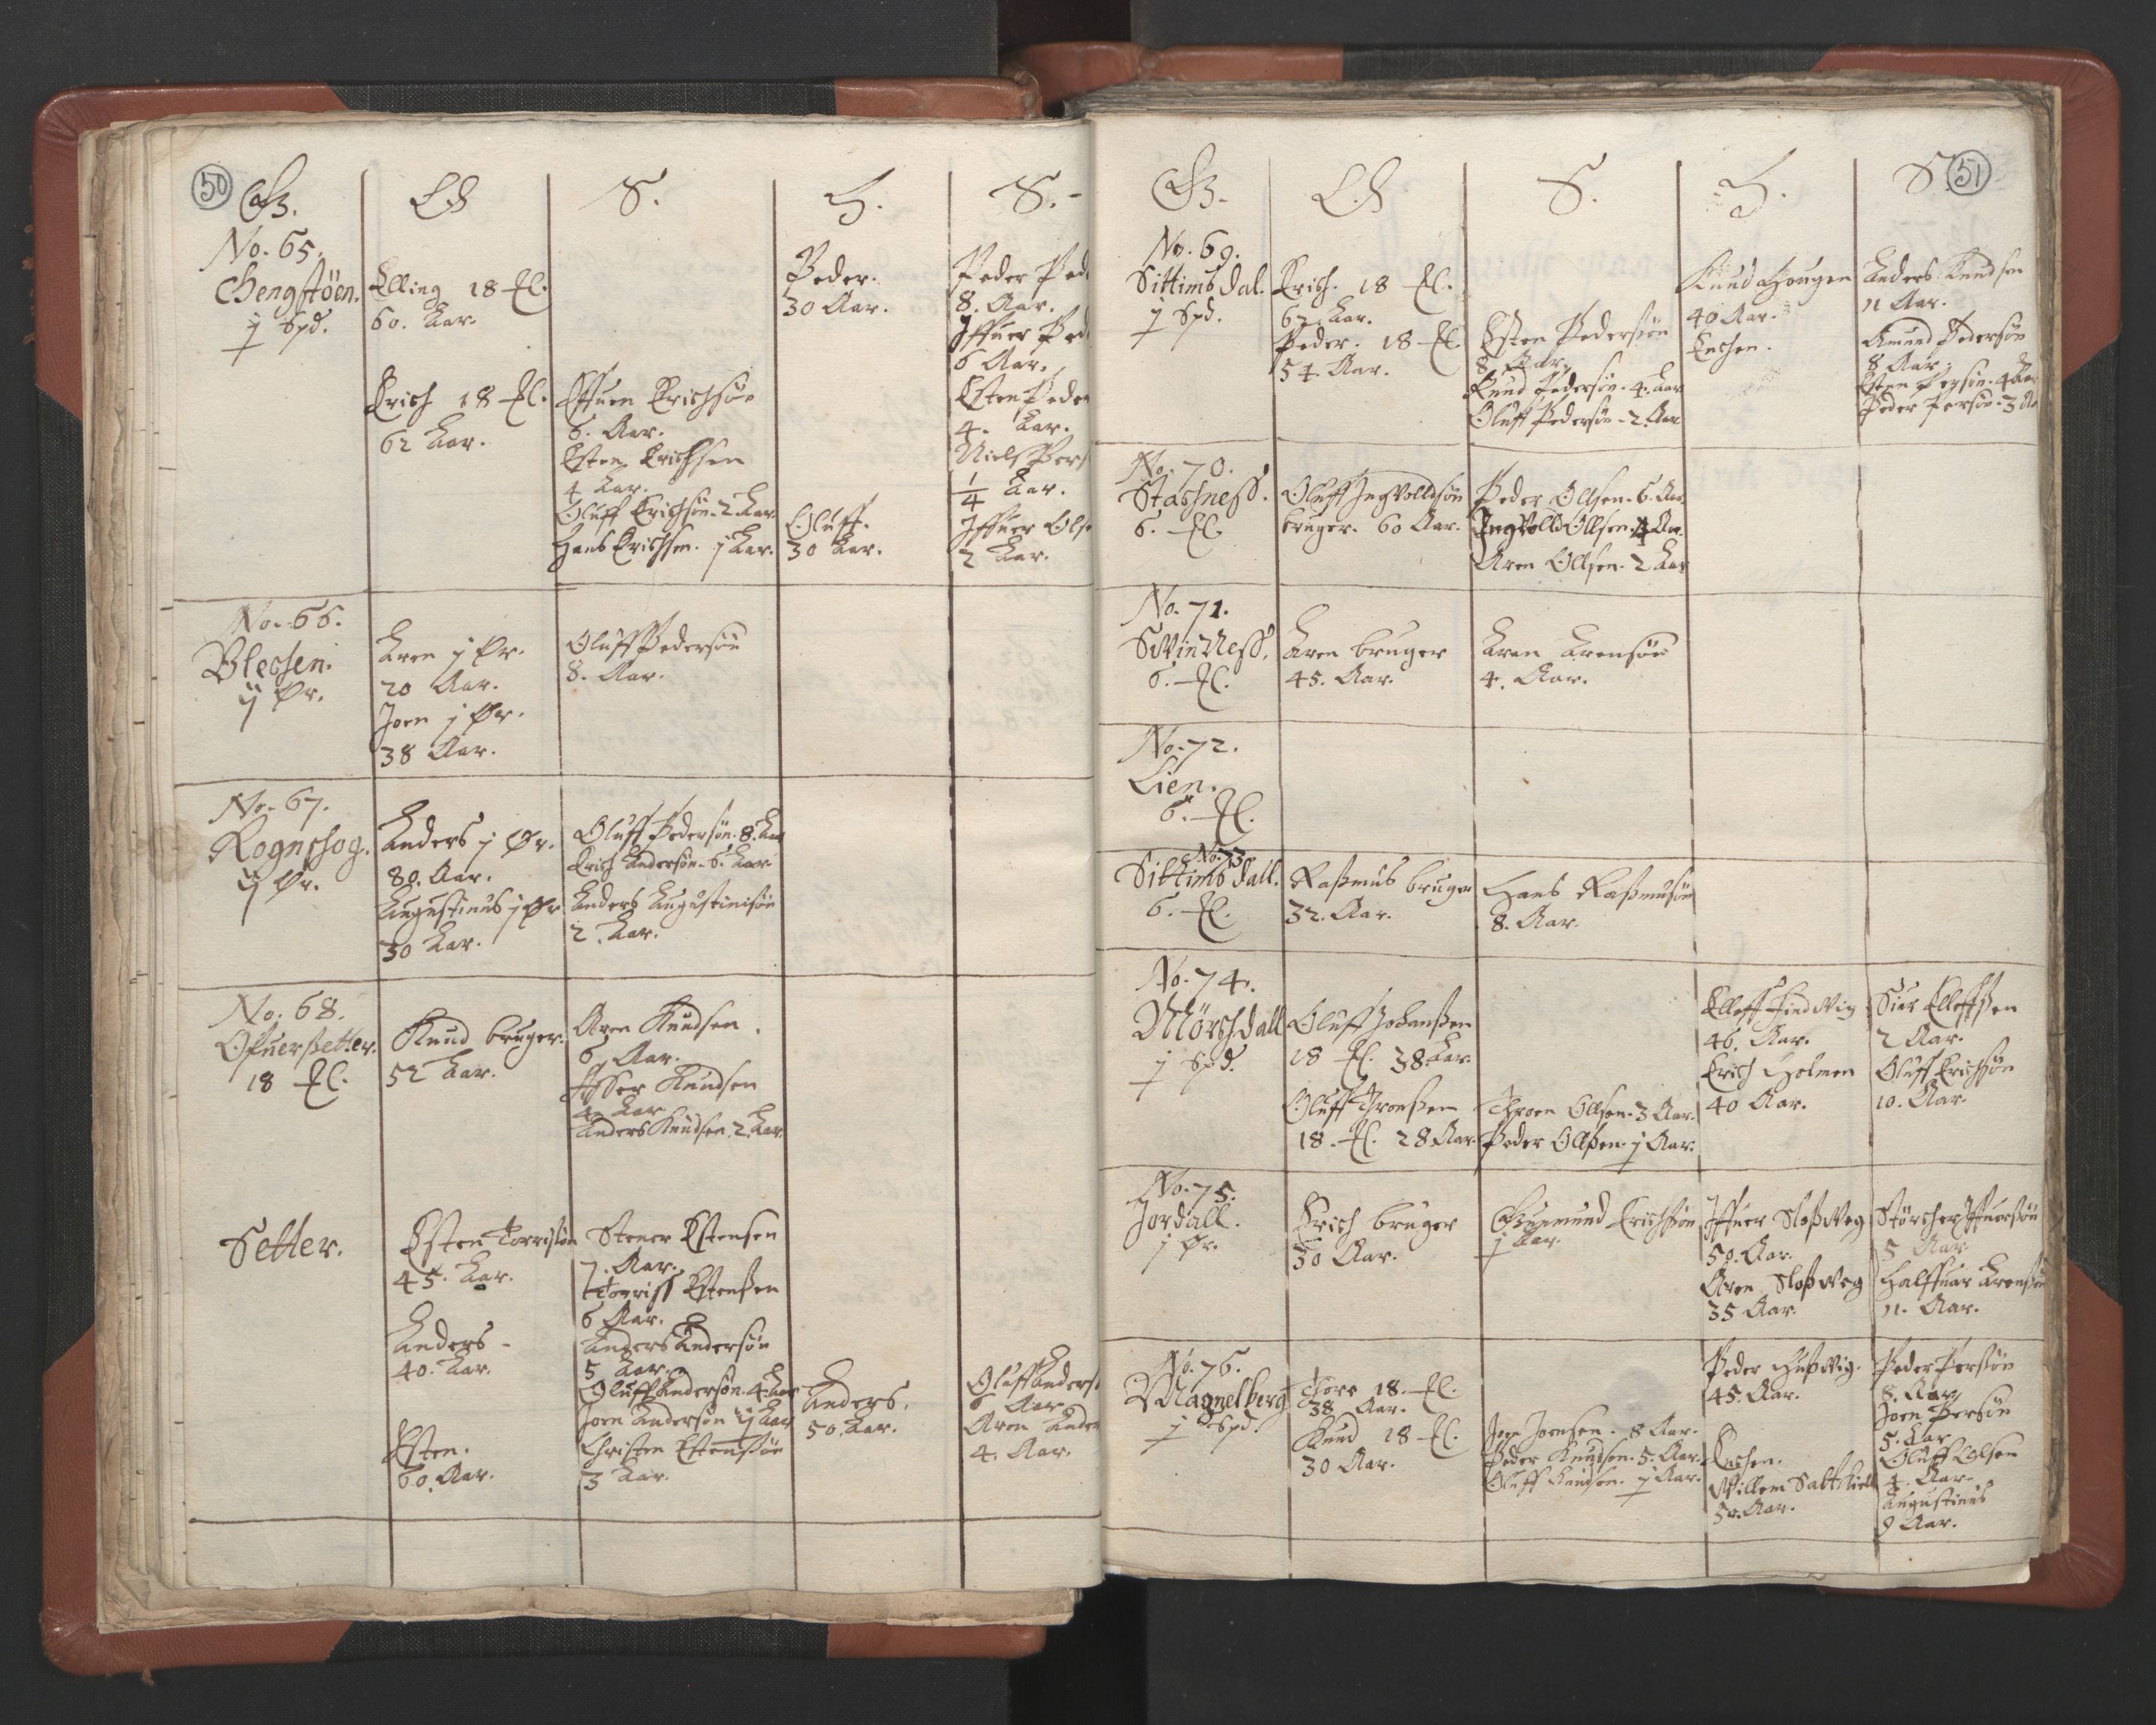 50
G.
No. 65.
Hengstöen.
j Spd.
Elling 18 ₰.
60. Aar.
Erich 18 ₰.
62 Aar.
S.
Iffuer Erichsön
6. Aar.
Esten Erichsen
4 Aar.
Oluff Erichsön. 2 Aar.
Hans Erichsen. j Aar.
H.
Peder.
30 Aar.
Oluff.
30 Aar.
S.
Peder Ped
8. Aar.
Iffuer Ped
6 Aar.
Esten Peder
4. Aar.
Niels Pers
1/4 Aar.
Iffuer Ols
2 Aar.
No. 66.
Blechen.
ij Ør.
Aren j Ør.
20 Aar.
Joen j Ør.
38 Aar.
Oluff Pedersön
8. Aar.
No. 67.
Rognshog.
ij Ør.
Anders j Ør.
80. Aar.
Augustinus j Ør
30 Aar.
Oluff Pedersön. 8. Aar
Erich Andersön. 6. Aar
Anders Augustinisön
2. Aar.
No. 68.
Ofuersetter.
18 ₰.
Knud bruger.
52 Aar.
Aren Knudsen.
6 Aar.
Asser Knudsen
4. Aar
Anders Knudsen. 2. Aar
Setter.
Esten Torrisön
45. Aar.
Anders
40. Aar.
Esten.
60. Aar.
Stener Estensen
7. Aar.
Torriss Estensen
6 Aar.
Anders Andersön
5 Aar.
Oluff Andersön. 4. Aar
Joen Andersön ij Aar
Christen Estensön
3 Aar.
Anders.
50. Aar.
Oluff Anders
6 Aar
Aren Ander
4. Aar.
51
G.
No. 69.
Sittims dal.
j Spd.
Erich. 18 ₰.
62. Aar.
Peder. 18 ₰.
54. Aar.
S.
Esten Pedersön
8 Aar.
Knud Pedersön. 4. Aar
Oluff Pedersön. 2. Aar
H.
Knud Hougen
40 Aar.
Enchen.
S.
Anders Knudsen
11 Aar.
Amund Pedersön
8 Aar.
Esten Persön. 4 Aar
Peder Persön. 3 Aa
No. 70.
Stachness.
6. ₰.
Oluff Ingvolldsön
bruger. 60 Aar.
Peder Ollsen. 6. Aar.
Ingvolld Ollsen. 4 Aar.
Aren Ollsen. 2 Aar
No. 71.
Svinness.
6. ₰.
Aren bruger
45. Aar.
Aren Arensön
4. Aar.
No. 72.
Lien.
6. ₰.
No. 73.
Sittims dall.
6. ₰.
Rasmus bruger
32. Aar.
Hans Rasmusön
8. Aar.
No. 74.
Mörchdall
j Spd.
Oluff Johansen
18 ₰. 38. Aar.
Oluff Tronsen
18. ₰. 28 Aar.
Throen Ollsen. 3 Aar.
Peder Ollsen. j Aar.
Elleff Findvig
46. Aar.
Erich Holmen
40 Aar.
Siur Elleffsen
2 Aar.
Oluff Erichsön
10. Aar.
No. 75.
Jordall.
j Ør.
Erich bruger
30 Aar.
Gunmund Erichsön
j Aar.
Iffuer Slossveg
50. Aar.
Aren Slossveg
35 Aar.
Störcher Iffuersön
5 Aar.
Halffuar Arensön
11. Aar.
No. 76.
Magnelberg
j Spd.
Thore 18. ₰.
38 Aar.
Knud 18 ₰.
30 Aar.
Joen Joensen. 8 Aar.
Peder Knudsen. 5. Aar.
Oluff Knudsen. j Aar.
Peder Husvig.
45. Aar.
Enchen.
Villem
50. Aar.
Peder Persön
8. Aar
Joen Persön
5. Aar
Oluff Olsen
4. Aar.
Augustinus
9 Aar.